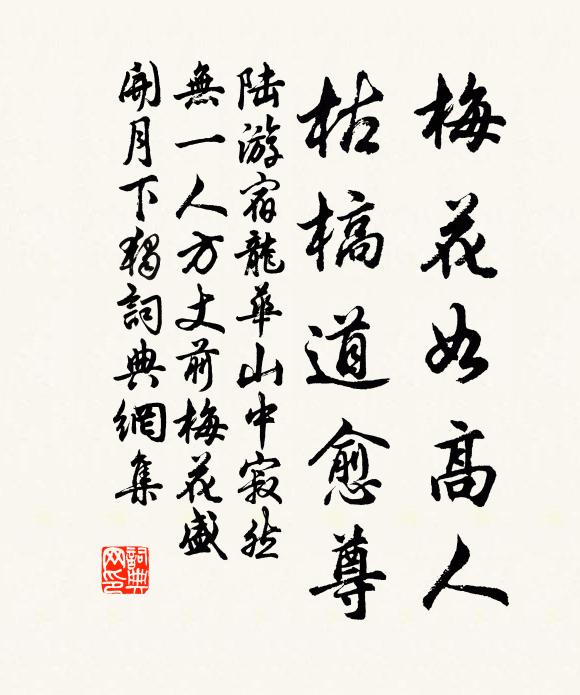 梅花如高人
枯槁道愈尊
陆游宿龍華山中寂然
無一人方丈前梅花盛
開月下獨詞典網集
詞典網印